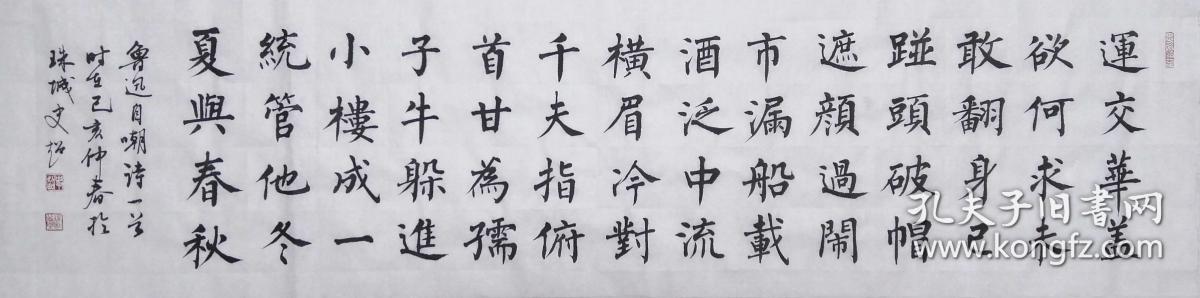 運交華盖
欲何求未
敢翻身已
踫頭破帽
遮顏過鬧
市漏船載
酒泛中流
橫眉冷對
千夫指俯
首甘為孺
子牛躲進
小樓成一
統管他冬
夏與春秋
魯迅自嘲诗一首
时在己亥仲春於
珠城史
孔夫子旧书网
www.kongfz.com